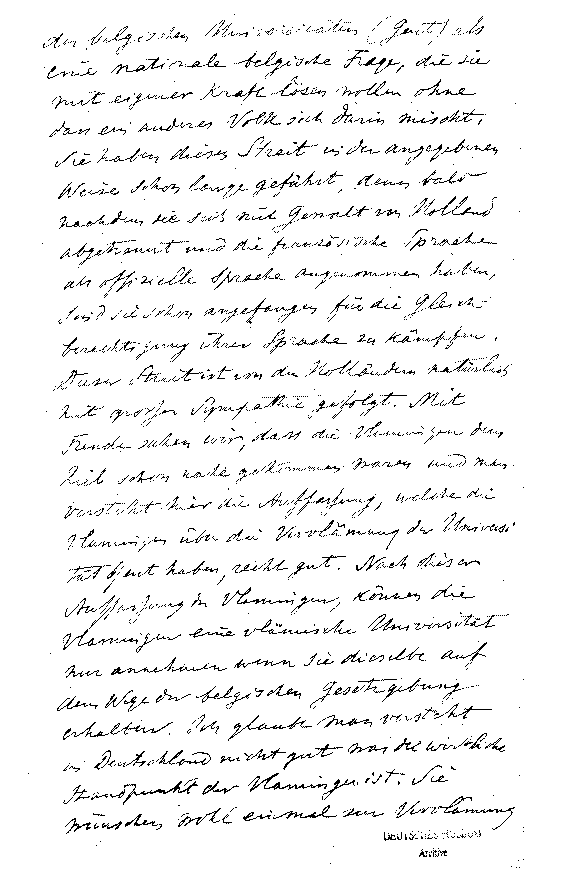 der belgischen Universitäten (Gent) als
eine nationale belgische Frage, die sie
mit eigener Kraft lösen wollen ohne
dass ein anderes Volk sich darin mischt.
Sie haben diesen Streit in der angegebenen
Weise schon lange geführt, denn bald
nachdem sie sich mit Gewalt von Holland
abgetrennt und die französische Sprache
als offizielle Sprache angenommen haben,
sind sie schon angefangen für die Gleich-
berechtigung ihrer Sprache zu kämpfen.
Dieser Streit ist von den Holländern natürlich
mit grosser Sympathie gefolgt. Mit
Freude sahen wir, dass die Vlamingen dem
Ziel schon nahe gekommen waren und man
versteht hier die Auffassung, welche die
Vlamingen über die Vervlämung der Universi
tät Gent haben, recht gut. Nach dieser
Auffassung der Vlamingen, können die
Vlamingen eine vlämische Universität
nur annehmen wenn sie dieselbe auf
dem Wege der belgischen Gesetzgebung
erhalten. Ich glaube man versteht
in Deutschland nicht gut was die wirkliche
Standpunkt der Vlamingen ist. Sie
wünschen wohl einmal zur Vervlämung
DEUTSCHES MUSEUM
Archive